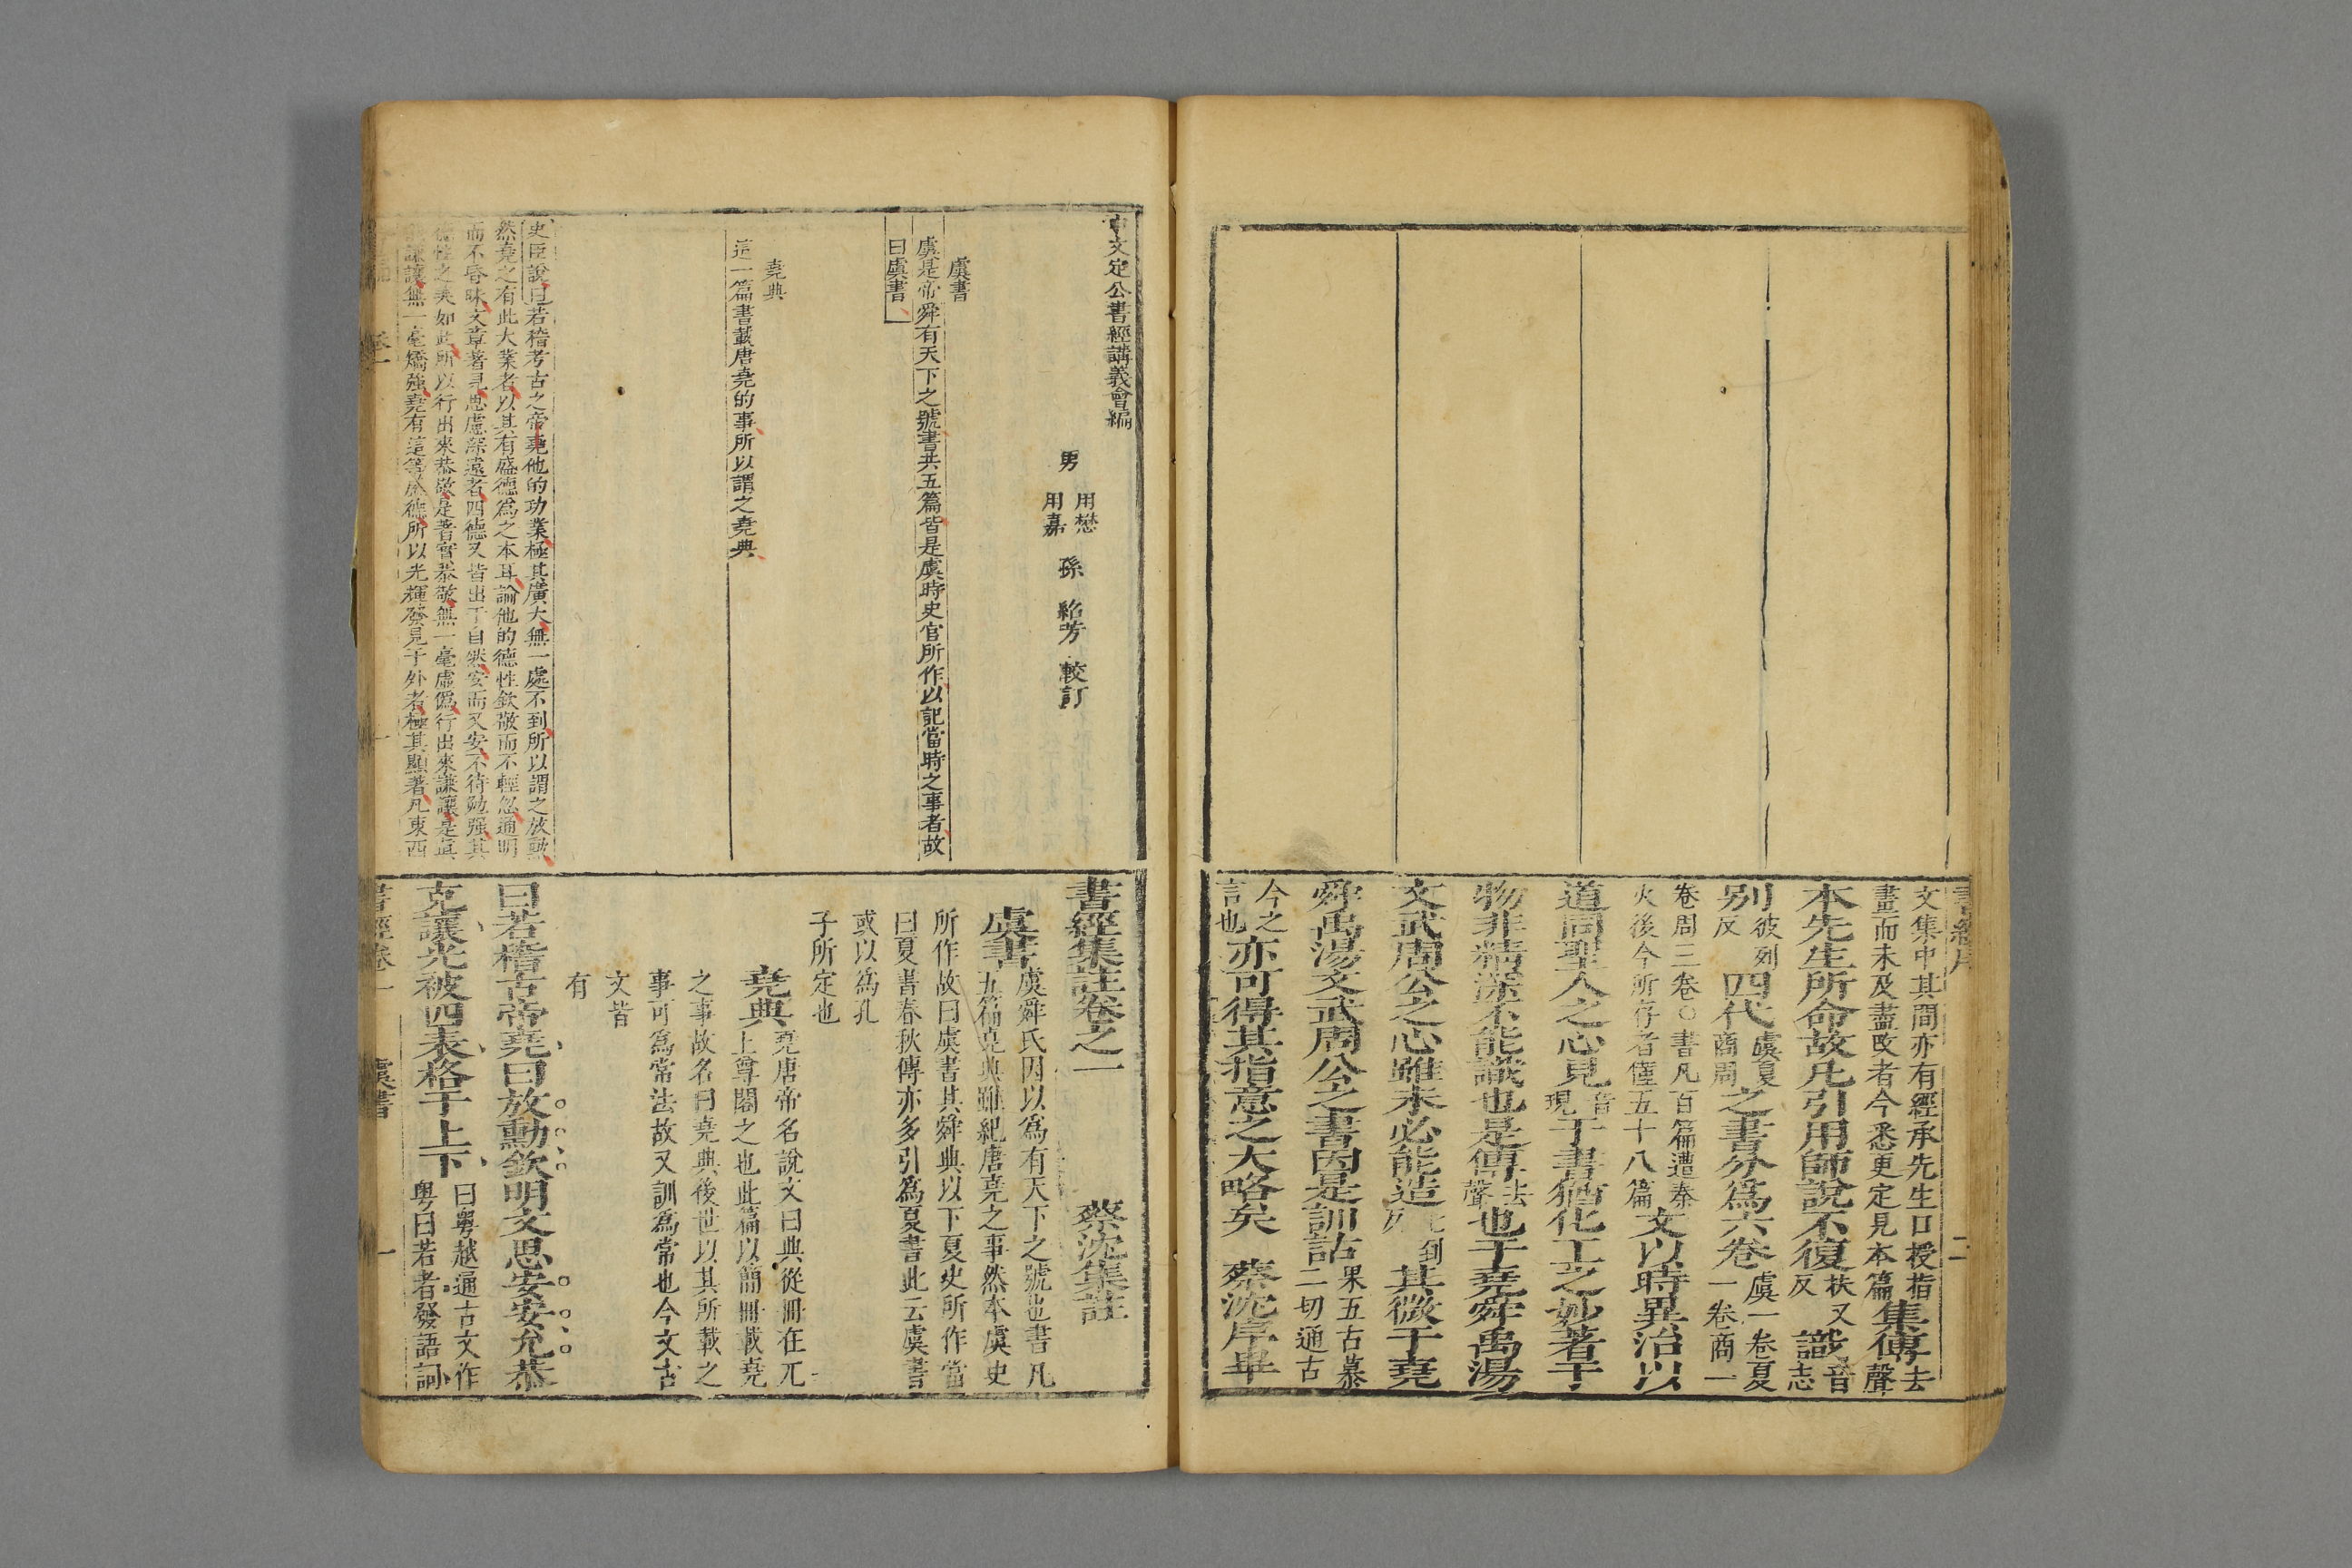 書經序
二
文集中其間亦有經承先生口授指
畫而未及盡改者今悉更定見本篇
集傳去聲
本先生所命故凡引用師說不復扶又反識音志
别彼列反四代虞夏商周之書分爲六卷虞一卷夏一卷商一
卷周三卷〇書凡百篇遭秦
火後今所存者僅五十八篇
文以時異治以
道同聖人之心見音現于書猶化工之妙著于
物非精深不能識也是傳去聲也于堯舜禹湯
文武周公之心雖未必能造其微于堯
舜禹湯文武周公之書因是訓詁果五古慕二切通古
今之言也亦可得其指意之大略矣 蔡沈序畢
申文定公書經講義會編
男 用懋 用嘉 孫 紹芳 較訂
虞書
虞是帝舜有天下之號書共五篇皆是虞時史官所作以記當時之事者故
曰虞書
堯典
這一篇書載唐堯的事所以謂之堯典
史臣說曰若稽考古之帝堯他的功業極其廣大無一處不到所以謂之放勳
然堯之有此大業者以其有盛德爲之本耳論他的德性欽敬而不輕忽通明
而不昏昧文章著見思慮深遠者四德又皆出于自然安而又安不待勉强其
德性之美如此所以行出來恭敬是著實恭敬無一毫虛僞行出來謙讓是真
謙讓無一毫矯强堯有這等盛德所以光輝發見于外者極其顯著凡東西
書經集註卷之一
蔡沈集註
虞書虞舜氏因以爲有天下之號也書凡
五篇堯典雖紀唐堯之事然本虞史
所作故曰虞書其舜典以下夏史所作當
曰夏書春秋傳亦多引爲夏書此云虞書
或以爲孔
子所定也
堯典堯唐帝名說文曰典從冊在丌
上尊閣之也此篇以簡冊載堯
之事故名曰堯典後世以其所載之
事可爲常法故又訓爲常也今文古
文皆
有
曰若稽古帝堯曰放勳欽明文思安安允恭
克讓光被四表格于上下曰粵越通古文作
粵曰若者發語詞
書經卷一 虞書 一